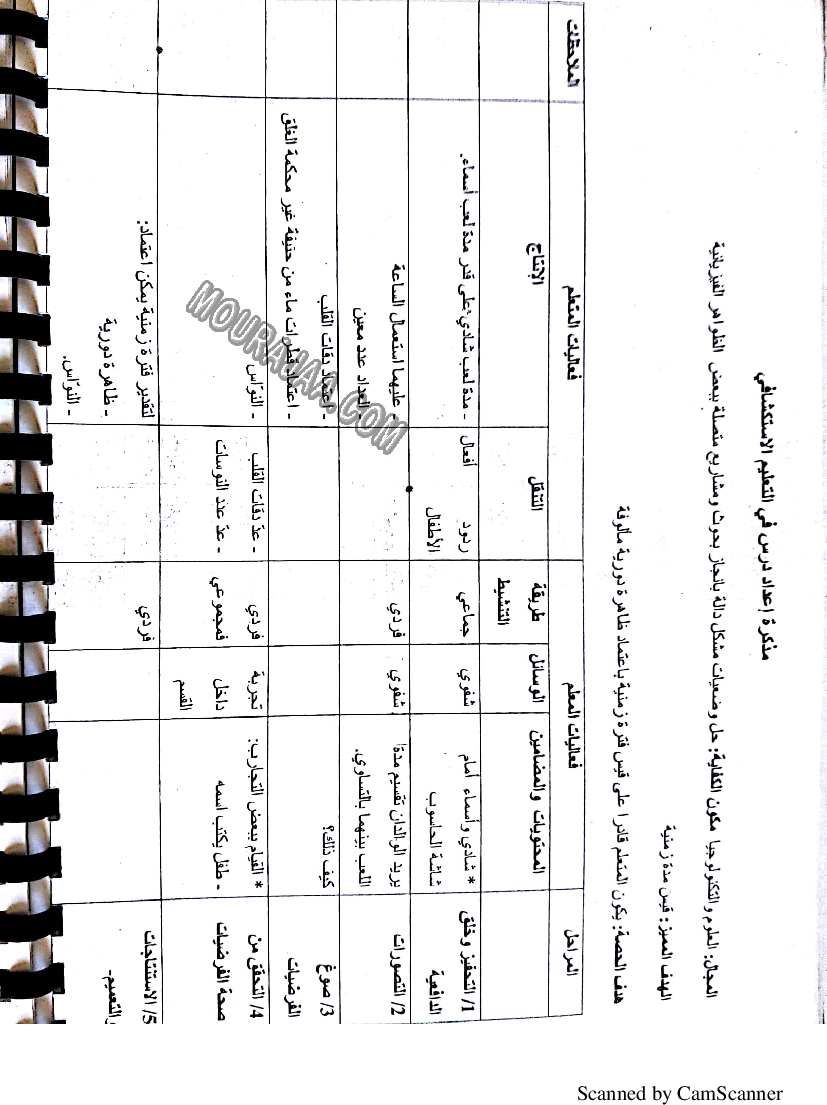 مذكرة إعداد درس في التعليم الاستكشافي
المجال: العلوم والتكنولوجيا مكون الكفاية: حل وضعيات مشكل دالة بانجاز بحوث ومشاريع متصلة ببعض الظواهر الفيزيائية
الهدف المميز: قيس مدة زمنية
هدف الحصة: يكون المتعلم قادرا على قيس فترة زمنية باعتماد ظاهرة دورية مألوفة
المراحل
فعاليات المعلم
فعاليات المتعلم
الملاحظات
المحتويات والمضامين
الوسائل
طريقة
التنشيط
التنقل
الإنتاج
1/ التحفيز وخلق
الدافعية
* شادي وأسماء أمام
شاشة الحاسوب
شفوي
جماعي
ردود أفعال
الأطفال
- مدة لعب شادي على قدر مدة لعب أسماء.
2/ التصورات
يريد الوالدان تقسيم مدة
اللعب بينهما بالتساوي.
شفوي
فردي
- عليهما استعمال الساعة
- العداد عدد معين
3/ صوغ
الفرضيات
كيف ذلك؟
- اعتماد دقات القلب
- اعتماد قطرات ماء من حنفية غير محكمة الغلق
4/ التحقق من
صحة الفرضيات
* القيام ببعض التجارب:
- طفل يكتب اسمه
تجربة
داخل
القسم
فردي
فمجموعي
- عدّ دقات القلب
- عدّ عدد النوسات
- النوّاس
5/ الاستنتاجات
والتعميم-
فردي
لتقدير فترة زمنية يمكن اعتماد:
- ظاهرة دورية
- النوّاس.
MOURAJAA.COM
Scanned by CamScanner